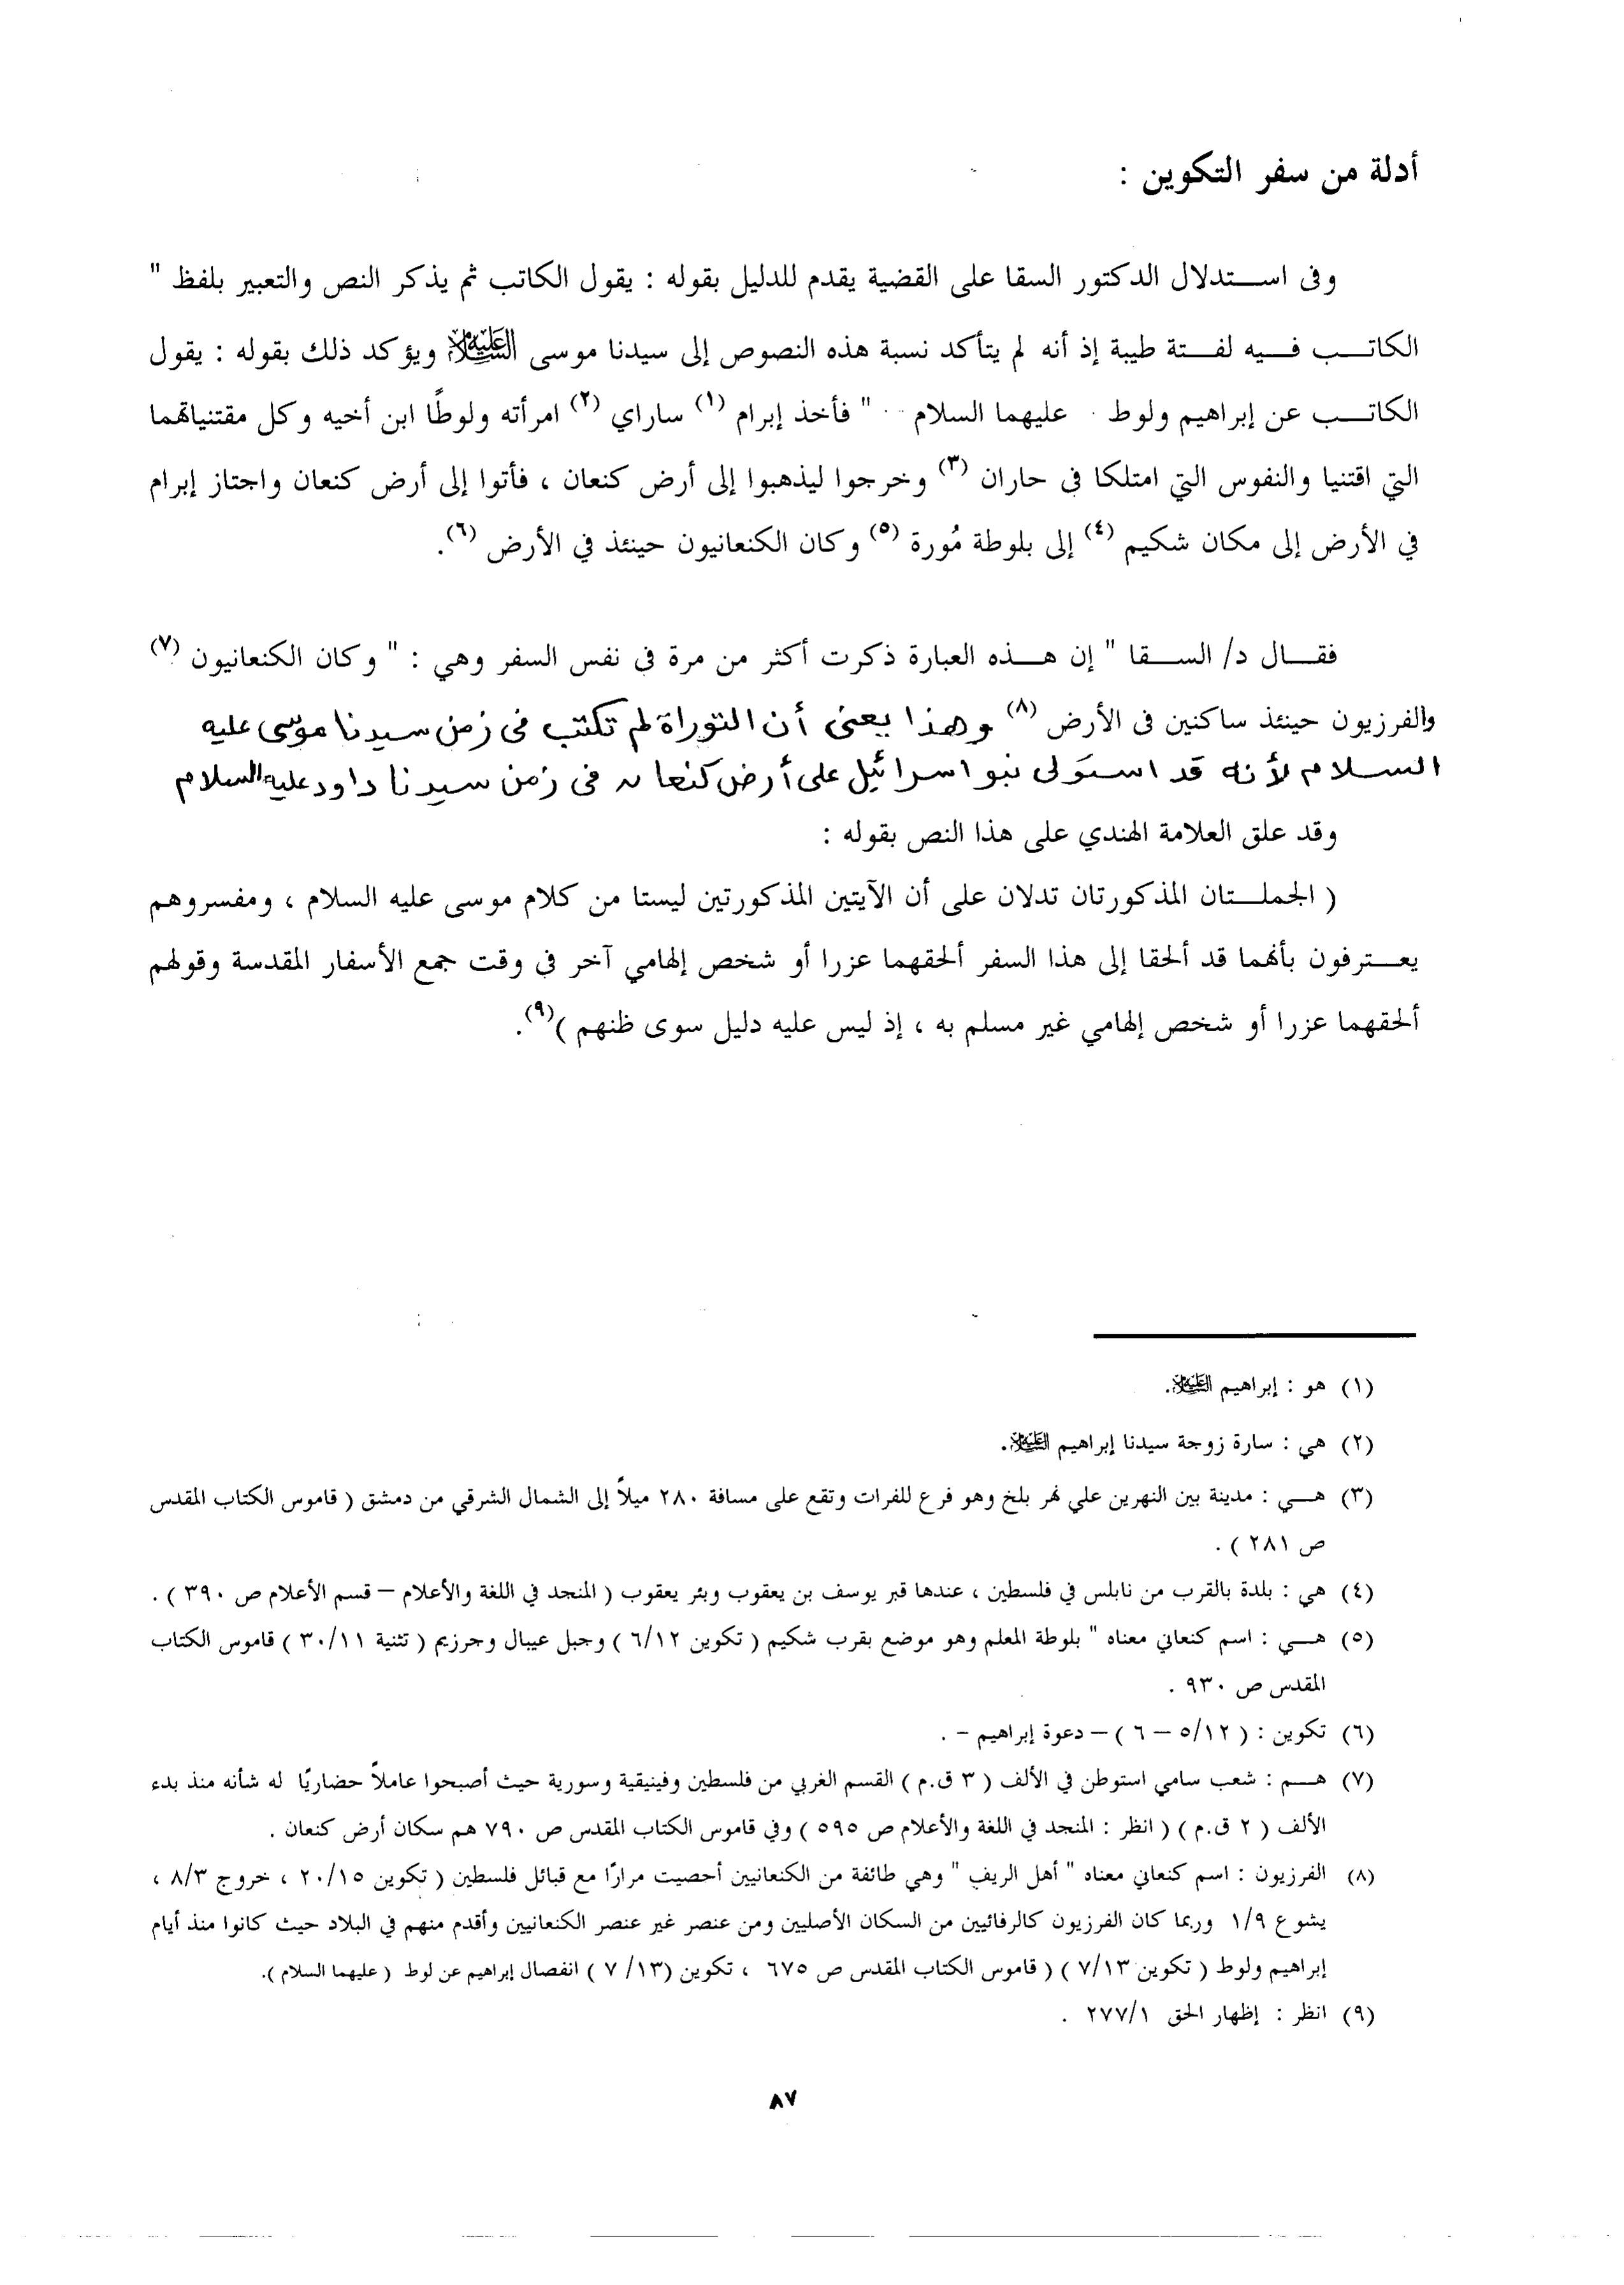 أدلة من سفر التكوين :
وفى استدلال الدكتور السقا على القضية يقدم للدليل بقوله : يقول الكاتب ثم يذكر النص والتعبير بلفظ "
الكاتب فيه لفتة طيبة إذ أنه لم يتأكد نسبة هذه النصوص إلى سيدنا موسى عليه السلام ويؤكد ذلك بقوله : يقول
الكاتب عن إبراهيم ولوط عليهما السلام " فأخذ إبرام (١) ساراي (٢) امرأته ولوطًا ابن أخيه وكل مقتنياتهما
التي اقتنيا والنفوس التي امتلكا فى حاران (٣) وخرجوا ليذهبوا إلى أرض كنعان ، فأتوا إلى أرض كنعان واجتاز إبرام
في الأرض إلى مكان شكيم (٤) إلى بلوطة مُورة (٥) وكان الكنعانيون حينئذ في الأرض (٦).
فقال د/ السقا " إن هذه العبارة ذكرت أكثر من مرة فى نفس السفر وهي : " وكان الكنعانيون (٧)
والفرزيون حينئذ ساكنين فى الأرض (٨) وهذا يعنى أن التوراة لم تكتب فى زمن سيدنا موسى عليه
السلام لأنه قد استولى بنو اسرائيل على أرض كنعان فى زمن سيدنا داود عليه السلام
وقد علق العلامة الهندي على هذا النص بقوله :
( الجملتان المذكورتان تدلان على أن الآيتين المذكورتين ليستا من كلام موسى عليه السلام ، ومفسروهم
يعترفون بأنهما قد ألحقا إلى هذا السفر ألحقهما عزرا أو شخص إلهامي آخر في وقت جمع الأسفار المقدسة وقولهم
ألحقهما عزرا أو شخص إلهامي غير مسلم به ، إذ ليس عليه دليل سوى ظنهم )(٩).
(١) هو : إبراهيم عليه السلام.
(٢) هي : سارة زوجة سيدنا إبراهيم عليه السلام.
(٣) هي : مدينة بين النهرين علي نهر بلخ وهو فرع للفرات وتقع على مسافة ٢٨٠ ميلاً إلى الشمال الشرقي من دمشق ( قاموس الكتاب المقدس
ص ٢٨١ ) .
(٤) هي : بلدة بالقرب من نابلس في فلسطين ، عندها قبر يوسف بن يعقوب وبئر يعقوب ( المنجد في اللغة والأعلام – قسم الأعلام ص ٣٩٠ ) .
(٥) هي : اسم كنعاني معناه " بلوطة المعلم وهو موضع بقرب شكيم ( تكوين ٦/١٢ ) وجبل عيبال وجرزيم ( تثنية ٣٠/١١ ) قاموس الكتاب
المقدس ص ٩٣٠ .
(٦) تكوين : ( ٥/١٢ – ٦ ) – دعوة إبراهيم - .
(٧) هم : شعب سامي استوطن في الألف ( ٣ ق.م ) القسم الغربي من فلسطين وفينيقية وسورية حيث أصبحوا عاملاً حضاريًا له شأنه منذ بدء
الألف ( ٢ ق.م ) ( انظر : المنجد في اللغة والأعلام ص ٥٩٥ ) وفي قاموس الكتاب المقدس ص ٧٩٠ هم سكان أرض كنعان .
(٨) الفرزيون : اسم كنعاني معناه " أهل الريف " وهي طائفة من الكنعانيين أحصيت مرارًا مع قبائل فلسطين ( تكوين ٢٠/١٥ ، خروج ٨/٣ ،
يشوع ١/٩ وربما كان الفرزيون كالرفائيين من السكان الأصليين ومن عنصر غير عنصر الكنعانيين وأقدم منهم في البلاد حيث كانوا منذ أيام
إبراهيم ولوط ( تكوين ٧/١٣ ) ( قاموس الكتاب المقدس ص ٦٧٥ ، تكوين (١٣/ ٧ ) انفصال إبراهيم عن لوط ( عليهما السلام ).
(٩) انظر : إظهار الحق ٢٧٧/١ .
٨٧